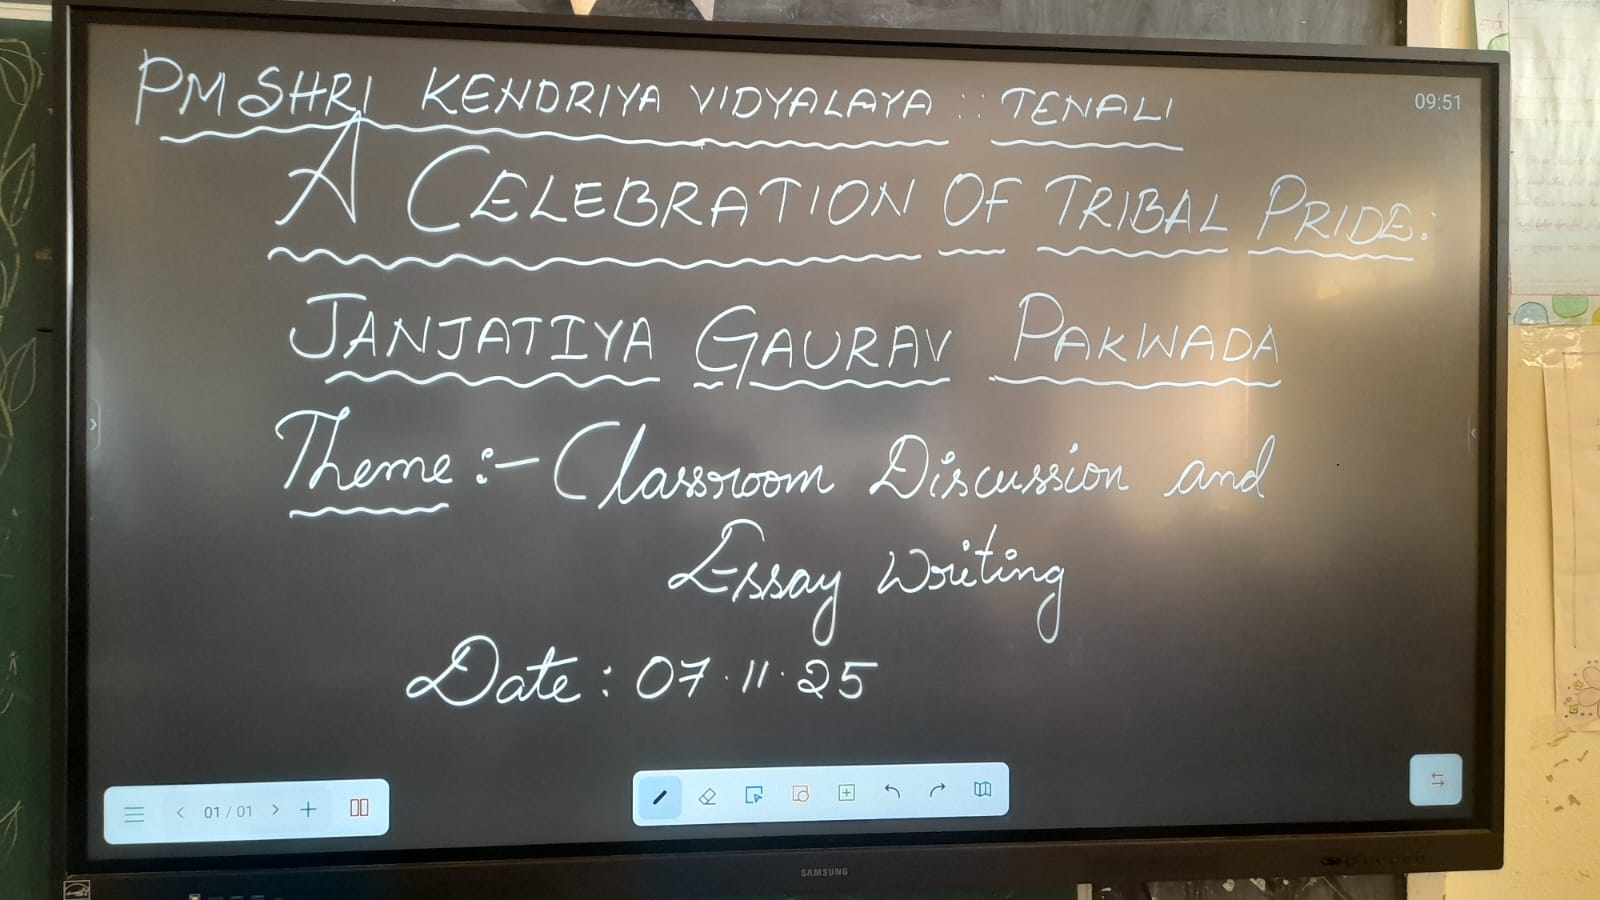 PM SHRI KENDRIYA VIDYALAYA :: TENALI
09:51
A CELEBRATION OF TRIBAL PRIDE:
JANJATIYA GAURAV PAKWADA
Theme :- Classroom Discussion and
Essay Writing
Date : 07.11.25
01 / 01
SAMSUNG